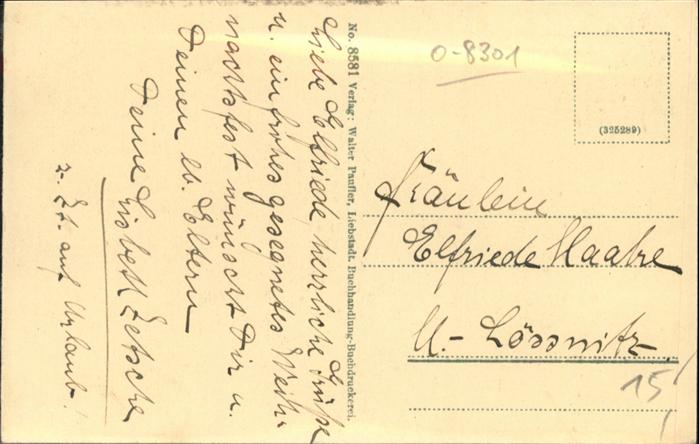 Liebe Elfriede, herzliche Grüße
u. ein frohes gesegnetes Weih-
nachtsfest wünscht Dir u.
Deinen lb. Eltern
Deine Lisbeth Zetsche
z. Zt. auf Urlaub!
No. 8581 Verlag: Walter Paufler, Liebstadt. Buchhandlung-Buchdruckerei.
0-8301
(325289)
Fräulein
Elfriede Haake
U.- Lössnitz
15